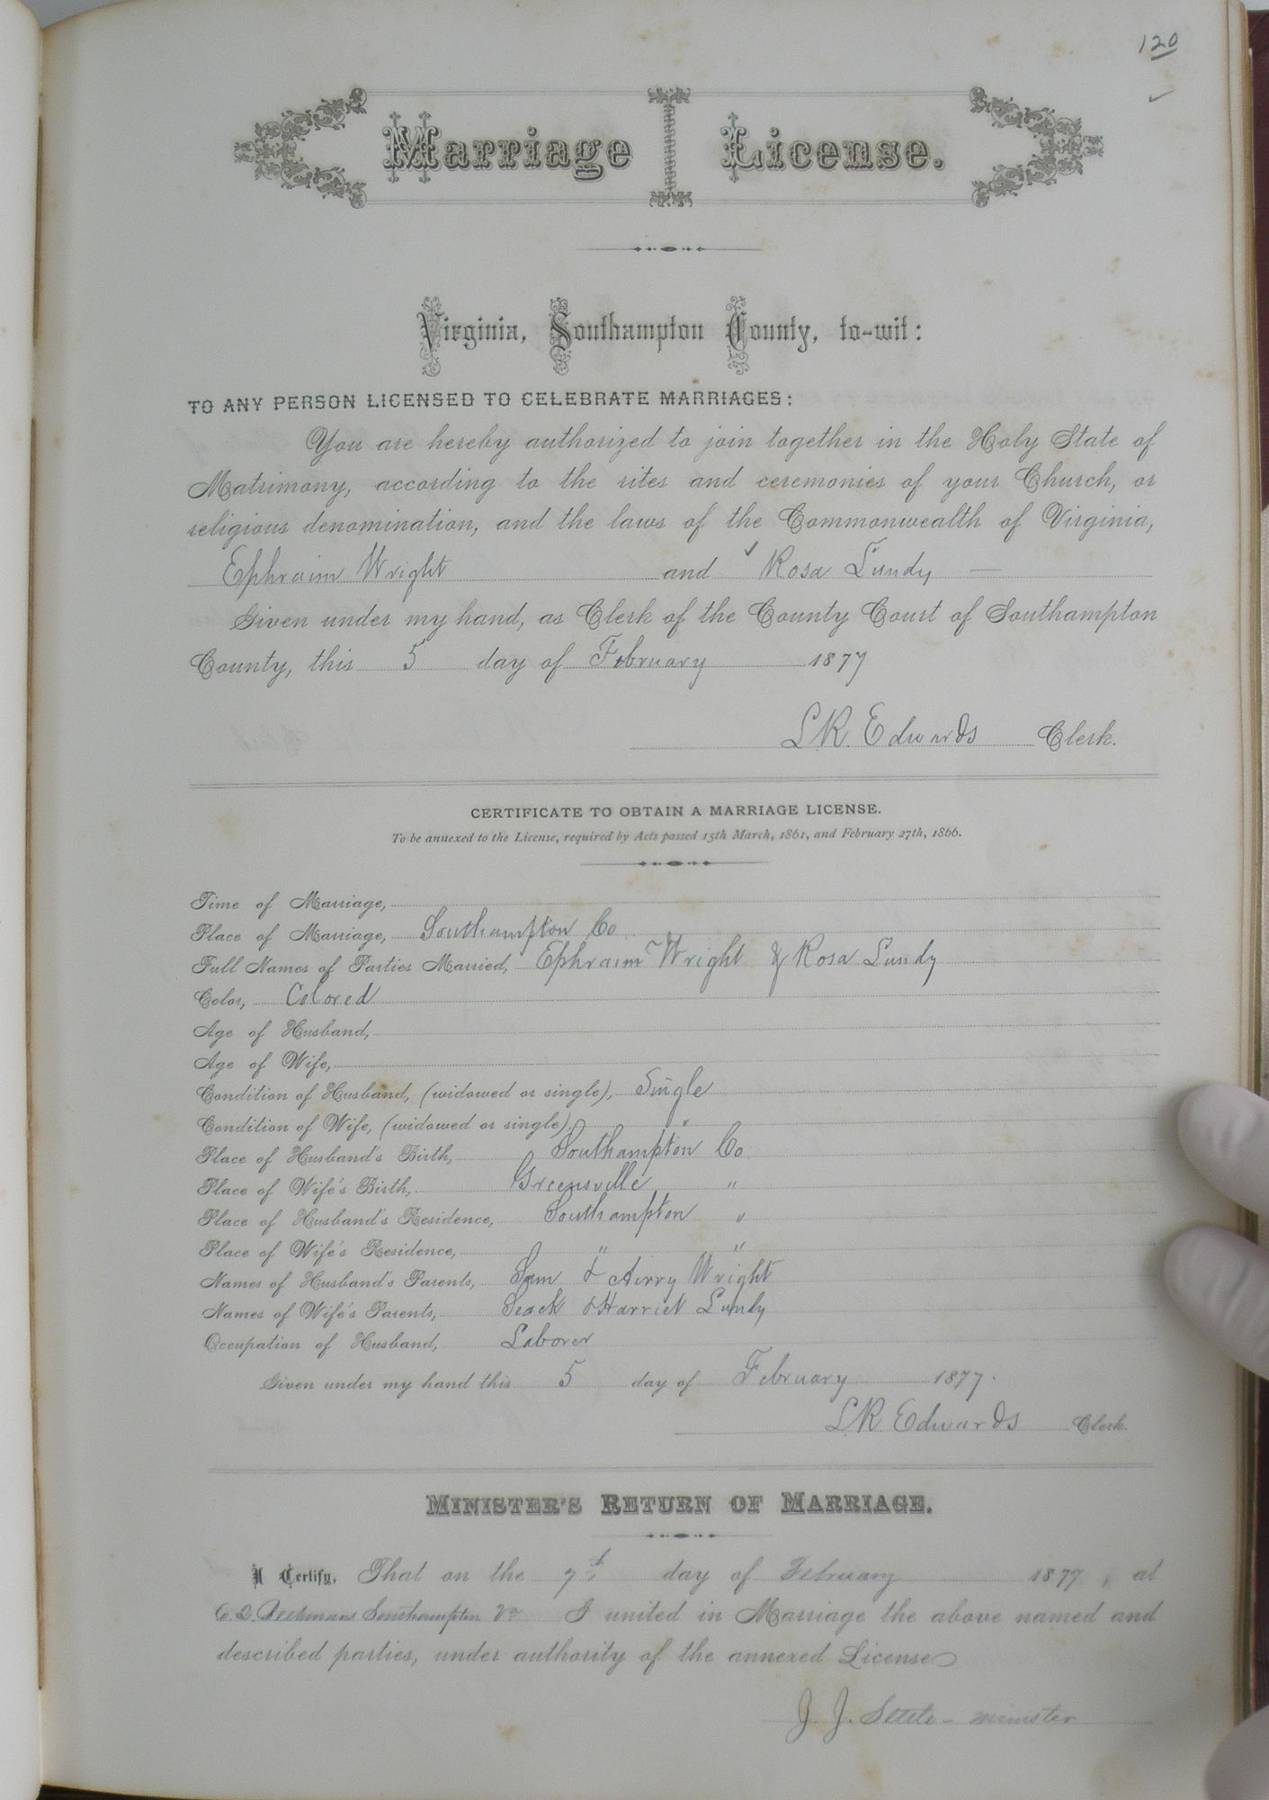 120
Marriage License.
Virginia, Southampton County, to-wit:
TO ANY PERSON LICENSED TO CELEBRATE MARRIAGES:
You are hereby authorized to join together in the Holy State of
Matrimony, according to the rites and ceremonies of your Church, or
religious denomination, and the laws of the Commonwealth of Virginia,
Ephraim Wright and Rosa Lundy
Given under my hand, as Clerk of the County Court of Southampton
County, this 5 day of February 1877
L.R. Edwards Clerk.
CERTIFICATE TO OBTAIN A MARRIAGE LICENSE.
To be annexed to the License, required by Acts passed 15th March, 1861, and February 27th, 1866.
Time of Marriage,
Place of Marriage, Southampton Co
Full Names of Parties Married, Ephraim Wright & Rosa Lundy
Color, Colored
Age of Husband,
Age of Wife,
Condition of Husband, (widowed or single), Single
Condition of Wife, (widowed or single), "
Place of Husband's Birth, Southampton Co
Place of Wife's Birth, Greensville "
Place of Husband's Residence, Southampton "
Place of Wife's Residence, " "
Names of Husband's Parents, Sam & Airry Wright
Names of Wife's Parents, & Harriet Lundy
Occupation of Husband, Laborer
Given under my hand this 5 day of February 1877.
L R Edwards Clerk.
MINISTER'S RETURN OF MARRIAGE.
I Certify, That on the 7th day of February 1877, at
Southampton Va I united in Marriage the above named and
described parties, under authority of the annexed License
J. J. minister